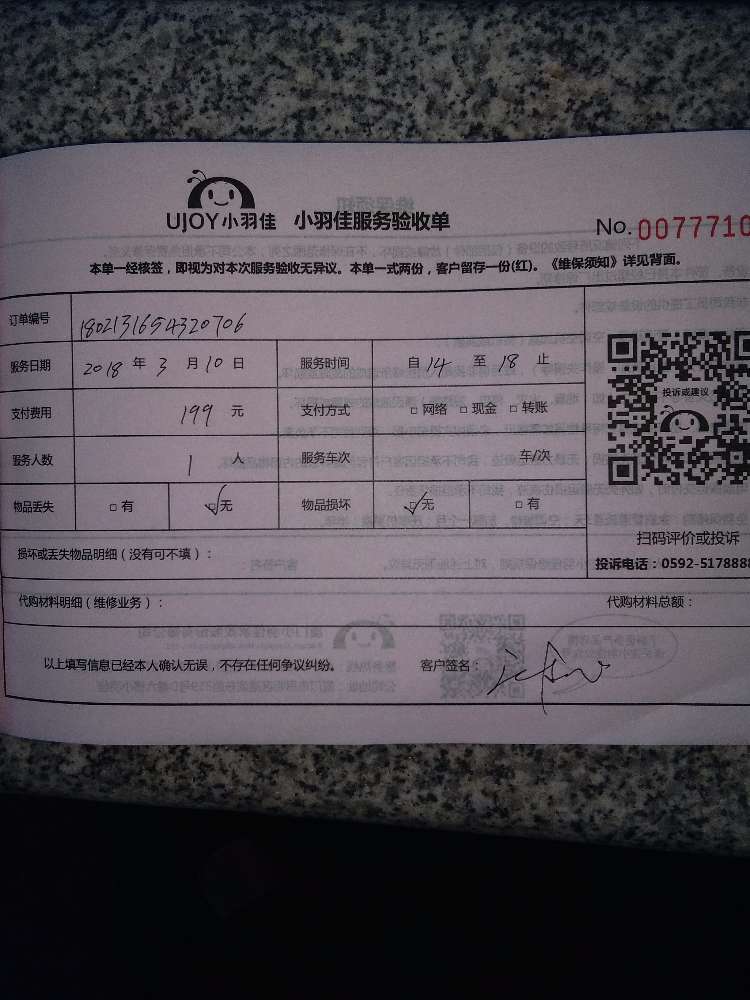 UJOY小羽佳 小羽佳服务验收单 No. 0077710
本单一经核签，即视为对本次服务验收无异议。本单一式两份，客户留存一份(红)。《维保须知》详见背面。
订单编号 1802131654320706
服务日期 2018 年 3 月 10 日 服务时间 自 14 至 18 止
投诉或建议
支付费用 199 元 支付方式 □ 网络 □ 现金 □ 转账
服务人数 1 人 服务车次 车/次
物品丢失 □ 有 ☑无 物品损坏 ☑无 □ 有
扫码评价或投诉
损坏或丢失物品明细（没有可不填）： 投诉电话：0592-5178888
代购材料明细（维修业务）： 代购材料总额：
以上填写信息已经本人确认无误，不存在任何争议纠纷。 客户签名：